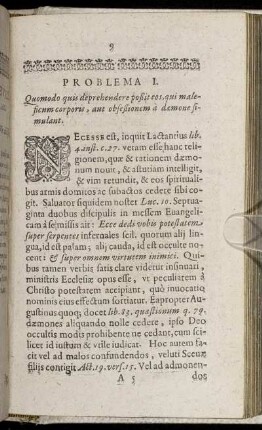 8
PROBLEMA I.
Quomodo quis deprehendere possit eos, qui male-
ficium corporis, aut obsessionem à dæmone si-
mulant.
NECESSE est, inquit Lactantius lib.
4. inst. c. 27. veram esse hanc reli-
gionem, quæ & rationem dæmo-
num novit, & astutiam intelligit,
& vim retundit, & eos spirituali-
bus armis domitos ac subactos cedere sibi co-
git. Salvator siquidem noster Luc. 10. Septua-
ginta duobus discipulis in messem Evangeli-
cam à se missis ait: Ecce dedi vobis potestatem
super serpentes infernales scil. quorum alij lin-
gua, id est palam; alij cauda, id est occulte no-
cent: & super omnem virtutem inimici. Qui-
bus tamen verbis satis clare videtur insinuari,
ministris Ecclesiæ opus esse, ut peculiarem à
Christo potestatem accipiant, quò invocatio
nominis eius effectum sortiatur. Eapropter Au-
gustinus quoq; docet lib. 83. quæstionum q. 79.
dæmones aliquando nolle cedere, ipso Deo
occultis modis prohibente ne cedant, cum sci-
licet id iustum & utile iudicat. Hoc autem fa-
cit vel ad malos confundendos, veluti Scevæ
filiis contigit Act. 19. vers. 15. Vel ad admonen-
A 5 dos